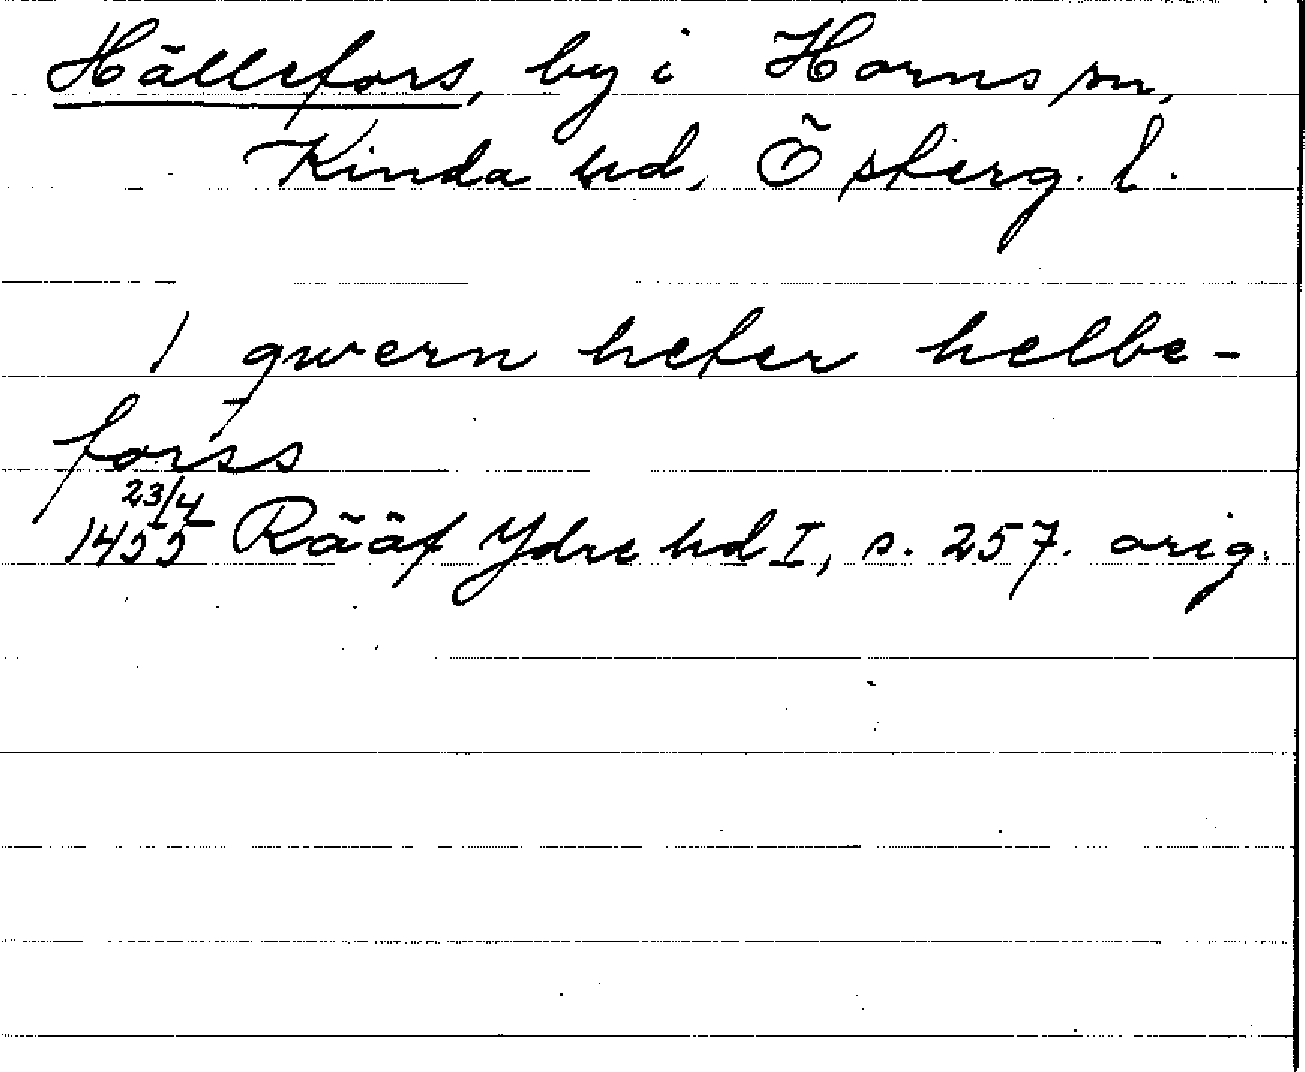 Hällefors, by i Horns sn,
Kinda hd, Österg. l.
1 qwern heter helbe-
forss
23/4
1455 Rääf Ydre hd I, s. 257. orig.